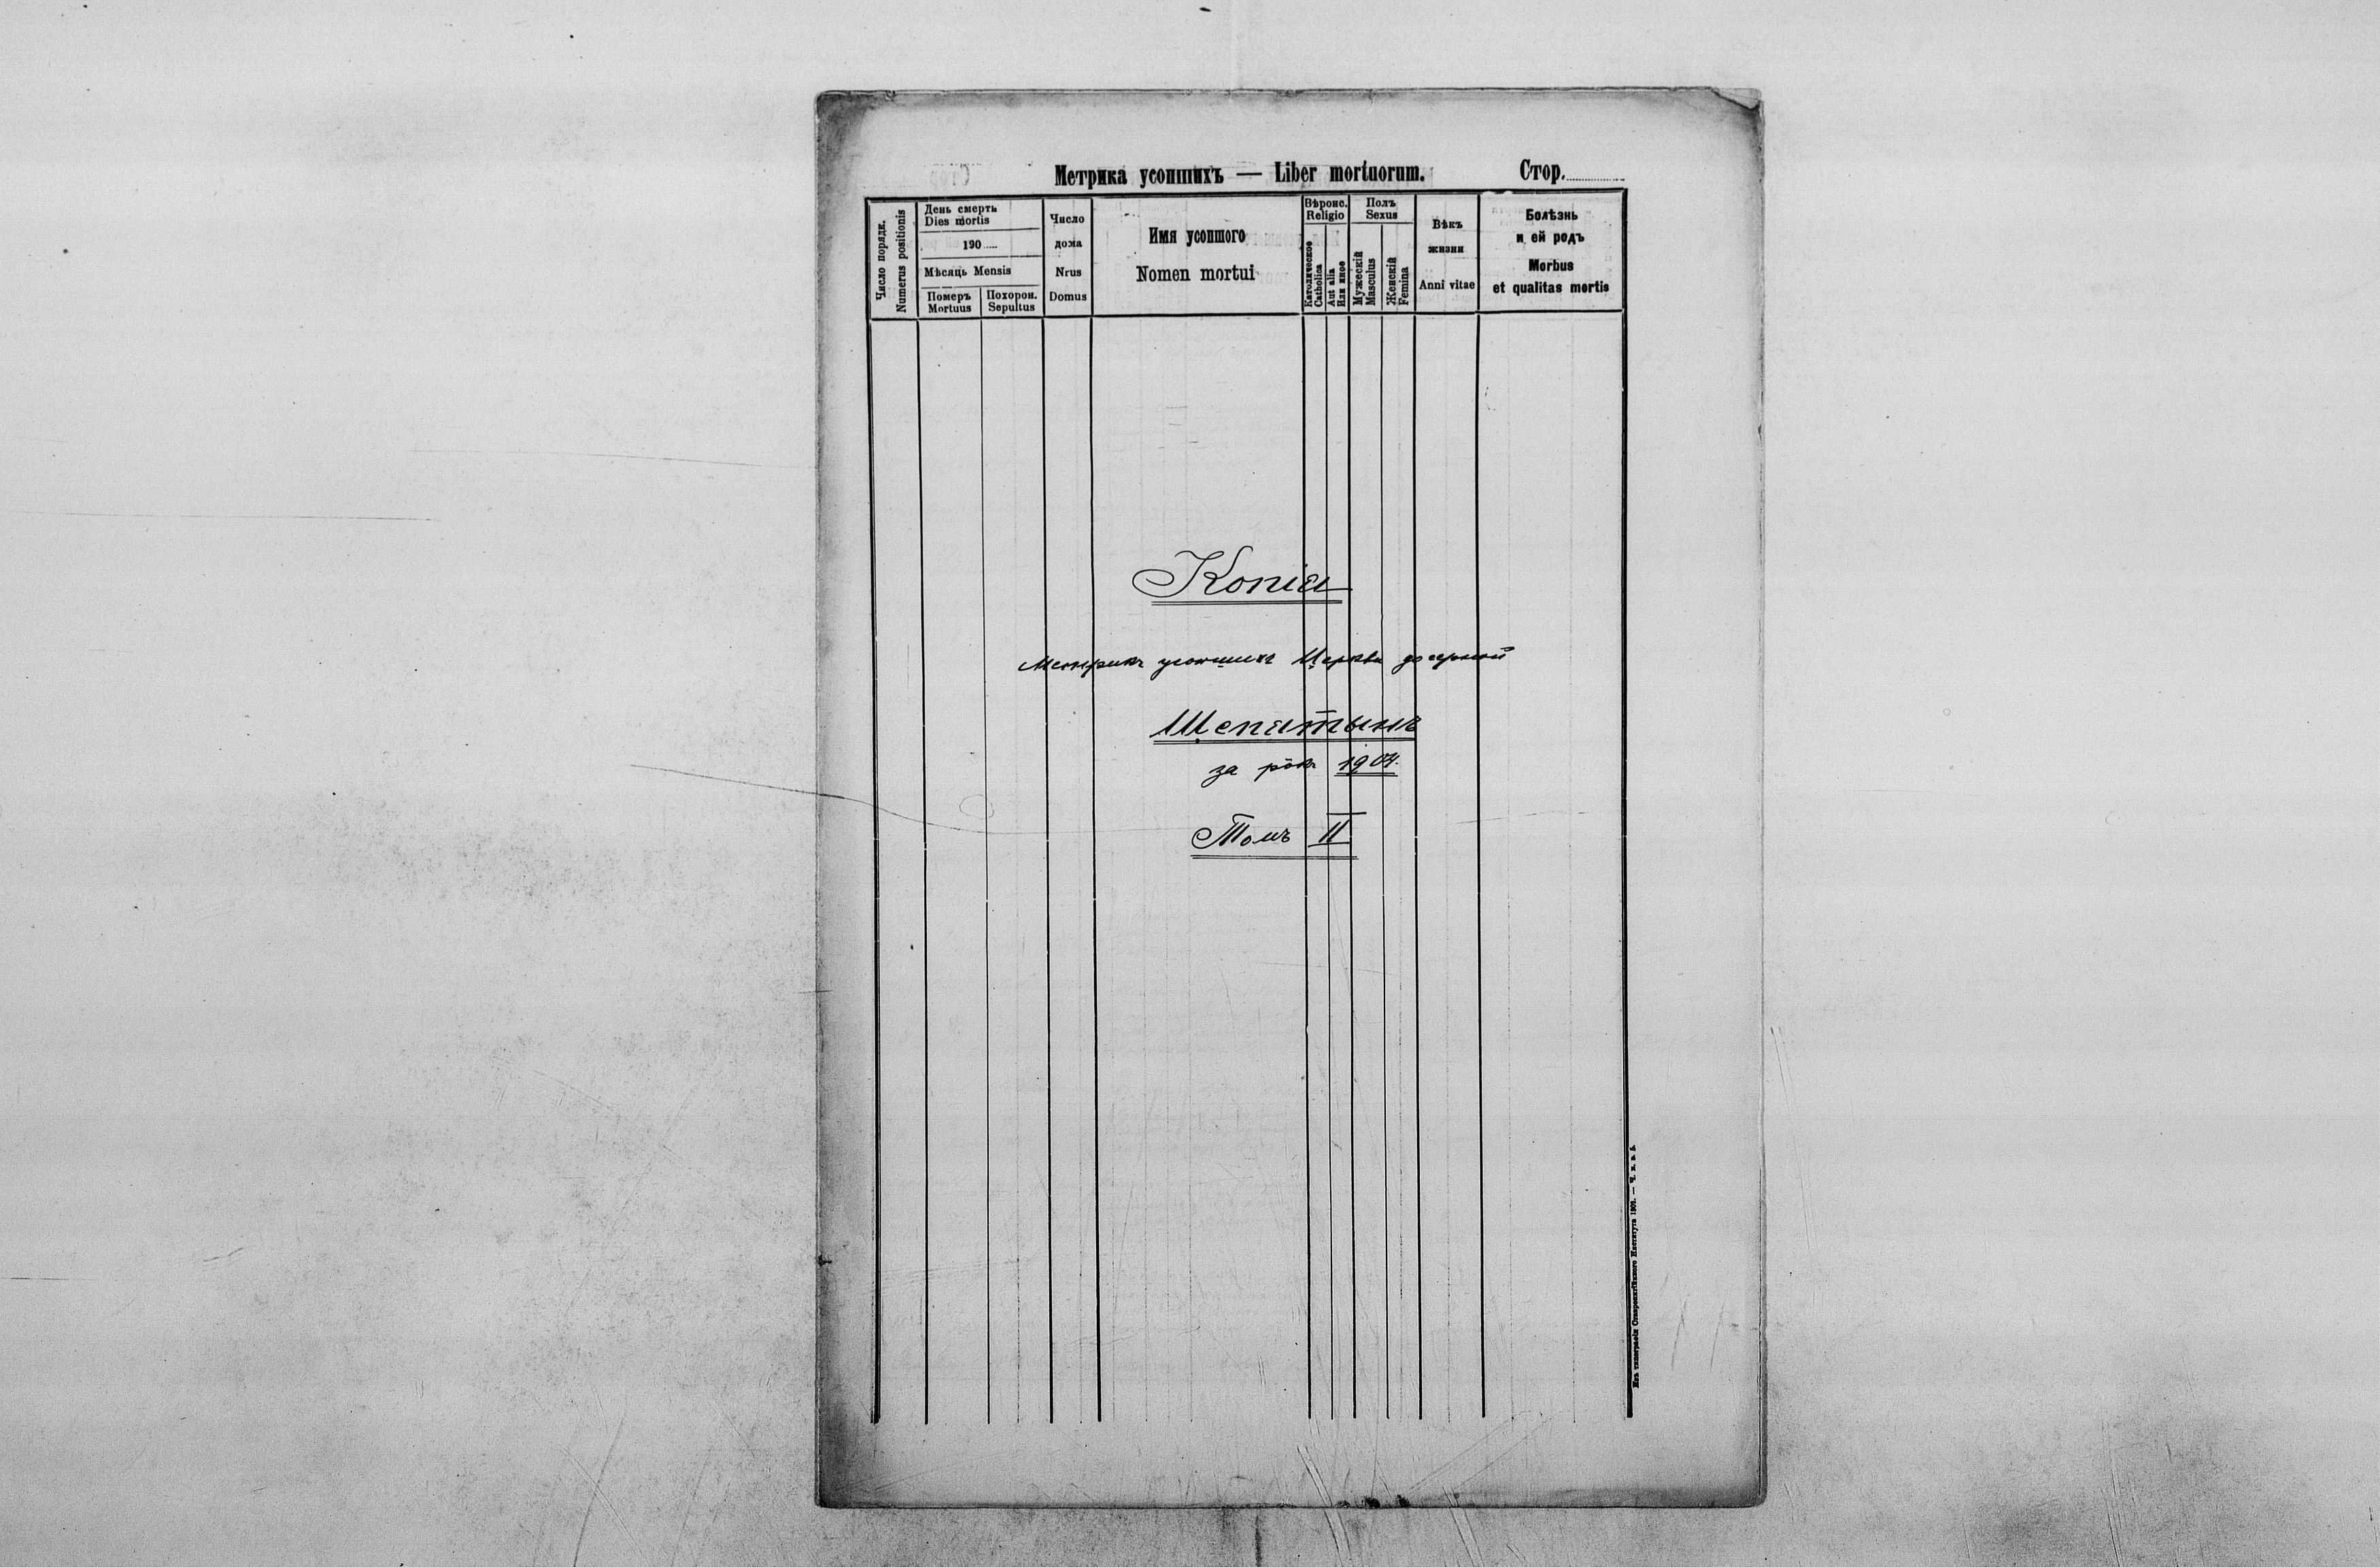 Метрика усопшихъ — Liber mortuorum. Стор.
Число порядк.
Numerus positionis
День смерть
Dies mortis
190
Мѣсяць Mensis
Померъ
Mortuus
Похорон.
Sepultus
Число
дома
Nrus
Domus
Имя усопшого
Nomen mortui
Вѣроис.
Religio
Католическое
Catholica
Aut alia
Или иное
Полъ
Sexus
Мужескій
Masculus
Женскій
Femina
Вѣкъ
жизни
Anni vitae
Болѣзнь
и ей родъ
Morbus
et qualitas mortis
Копія
Метрикъ усопшихъ Церкви дочерной
Щепятынъ
за рôкъ 1904.
Томъ II
Изъ типографіи Ставропигійского Института 1901.